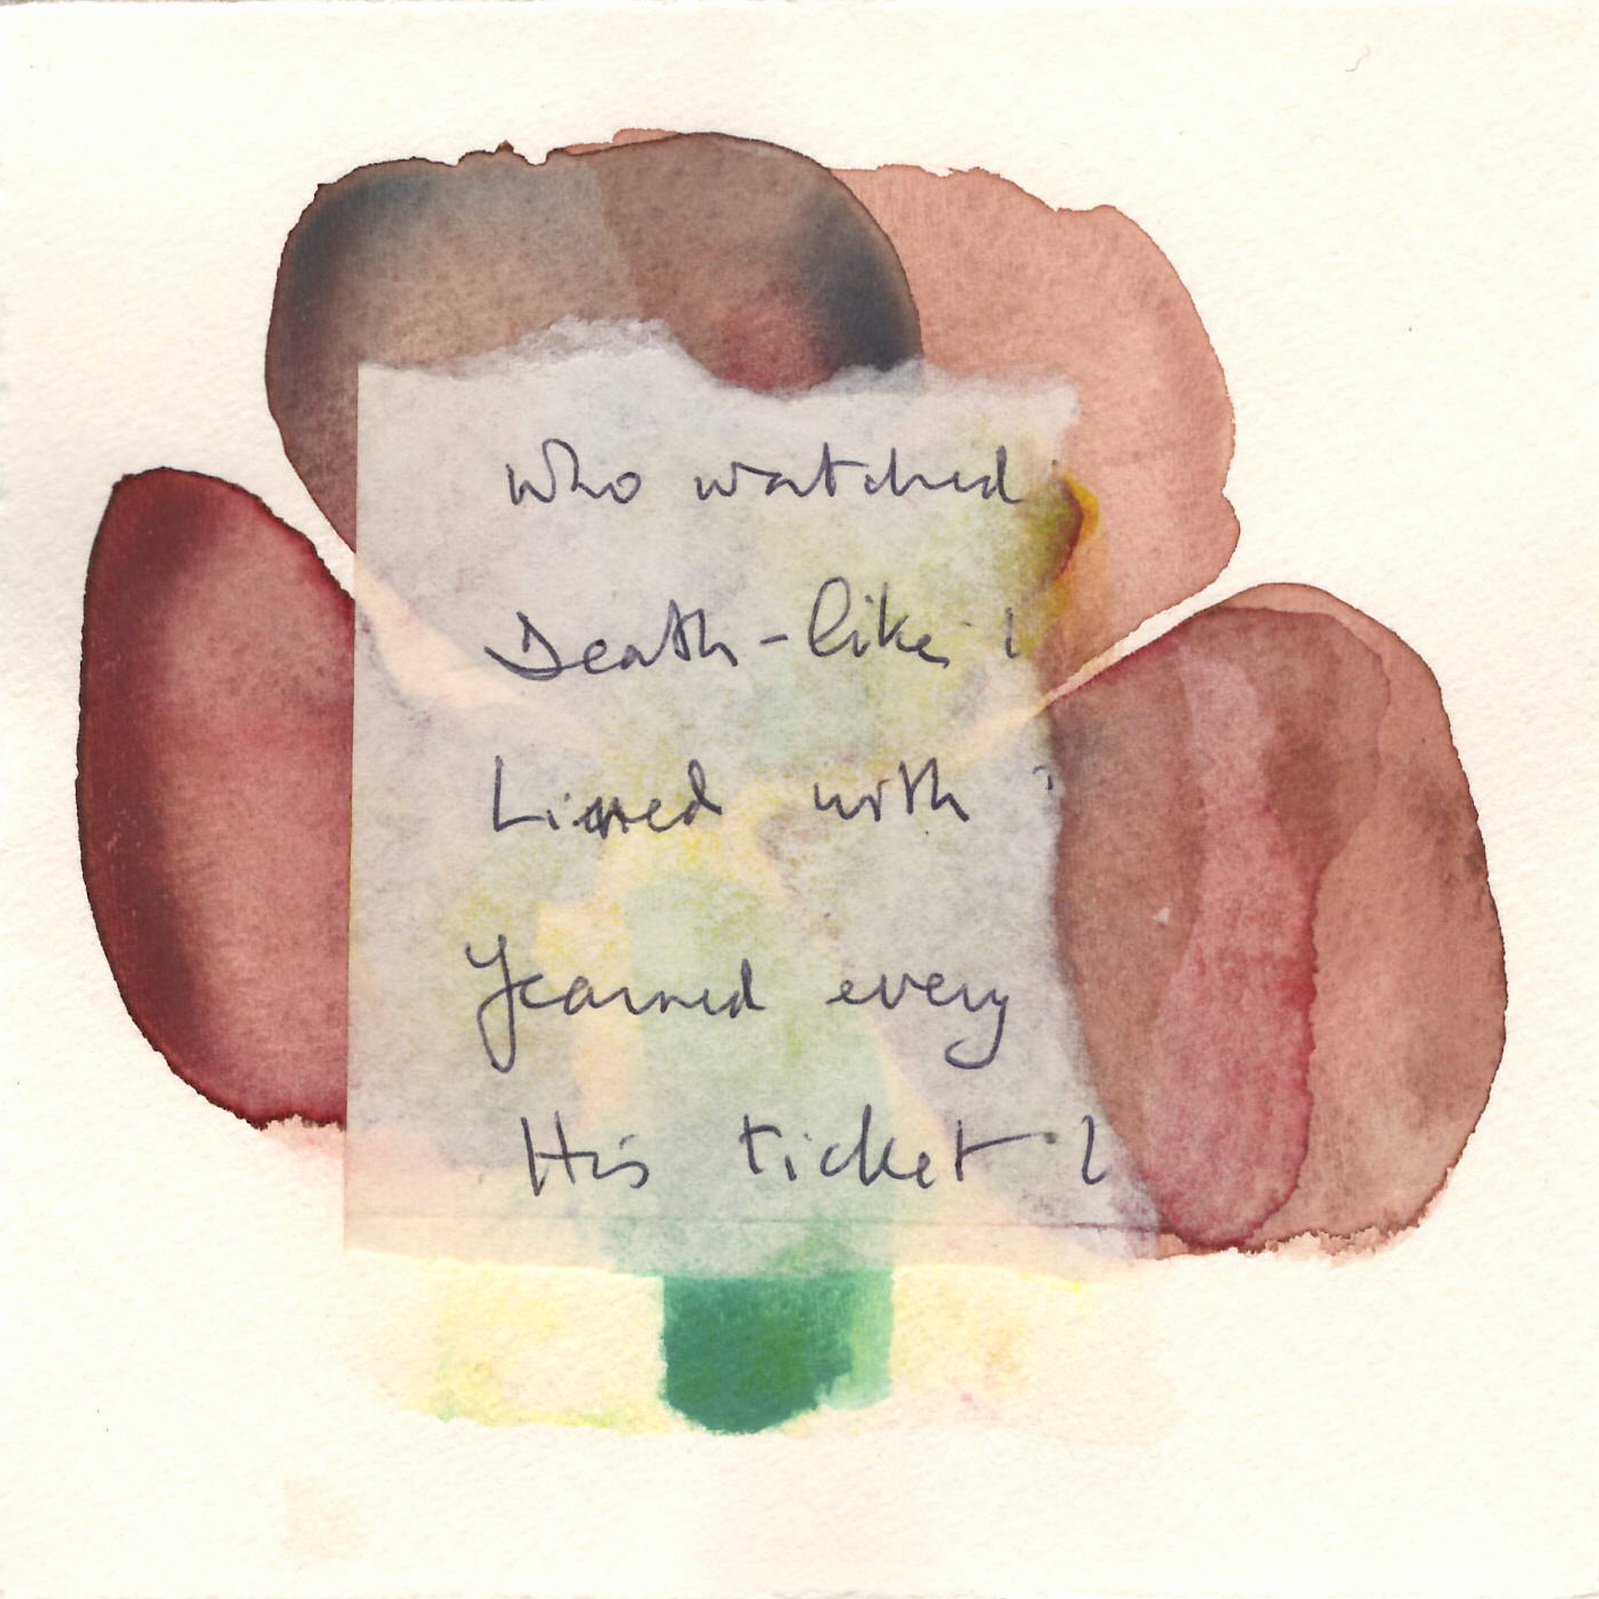 Who watched
Death-like
Lined with
Yearned every
His ticket